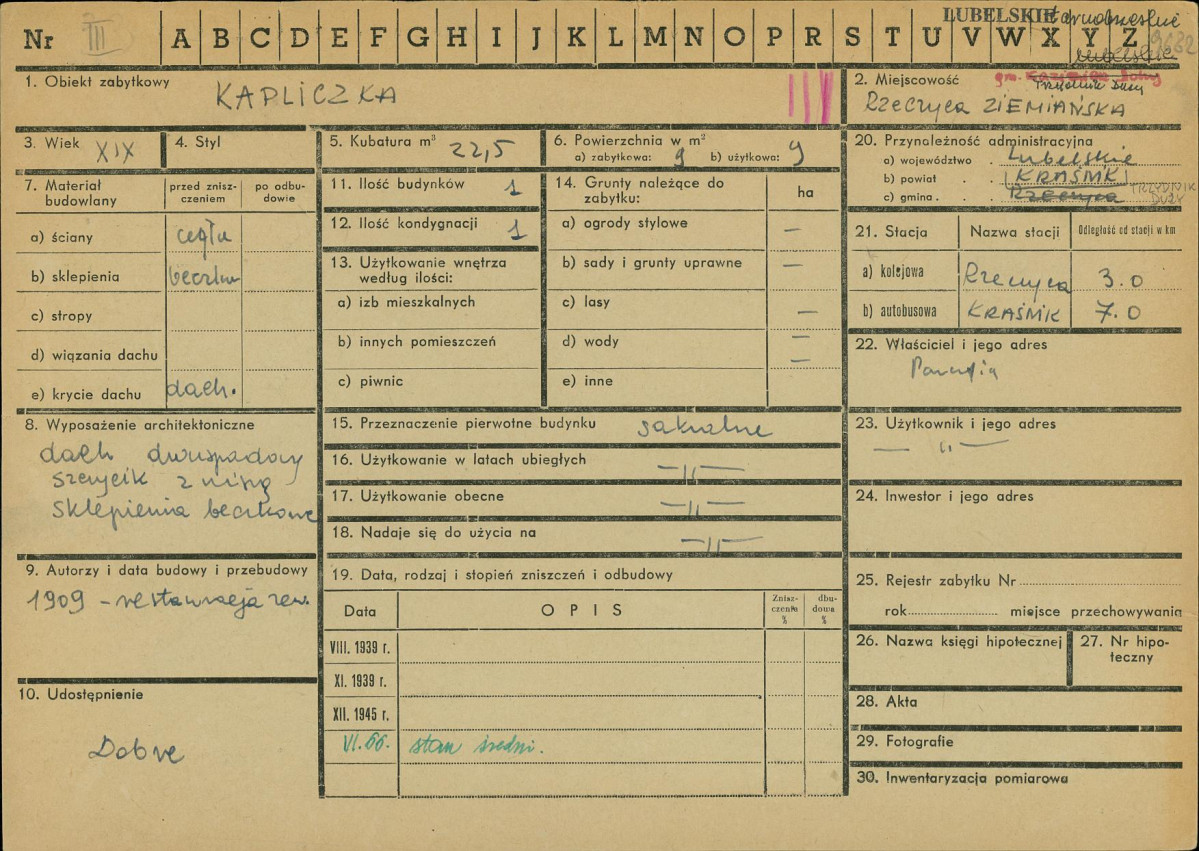 Nr III A B C D E F G H I J K L M N O P R S T U V W X Y Z
LUBELSKIE tarnobrzeskie
lubelskie
1. Obiekt zabytkowy
KAPLICZKA
2. Miejscowość gm. Kazimierz Dolny
Trzydnik Duży
Rzeczyca ZIEMIAŃSKA
3. Wiek XIX
4. Styl
5. Kubatura m³ 22,5
6. Powierzchnia w m²
a) zabytkowa: 9 b) użytkowa: 9
20. Przynależność administracyjna
a) województwo . Lubelskie
b) powiat . . KRAŚNIK
c) gmina . . Rzeczyca TRZYDNIK DUŻY
7. Materiał budowlany
przed znisz-
czeniem
po odbu-
dowie
a) ściany cegła
b) sklepienia beczka
c) stropy
d) wiązania dachu
e) krycie dachu dach.
11. Ilość budynków 1
12. Ilość kondygnacji 1
13. Użytkowanie wnętrza
według ilości:
a) izb mieszkalnych
b) innych pomieszczeń
c) piwnic
14. Grunty należące do
zabytku:
ha
a) ogrody stylowe —
b) sady i grunty uprawne —
c) lasy —
d) wody —
—
e) inne
21. Stacja Nazwa stacji Odległość od stacji w km
a) kolejowa Rzeczyca 3.0
b) autobusowa KRAŚNIK 7.0
22. Właściciel i jego adres
Parafia
8. Wyposażenie architektoniczne
dach dwuspadowy
szczycik z niszą
sklepienia beczkowe
15. Przeznaczenie pierwotne budynku sakralne
16. Użytkowanie w latach ubiegłych —"—
17. Użytkowanie obecne —"—
18. Nadaje się do użycia na —"—
23. Użytkownik i jego adres
— "—
24. Inwestor i jego adres
9. Autorzy i data budowy i przebudowy
1909 – restauracja zew.
19. Data, rodzaj i stopień zniszczeń i odbudowy
Data OPIS
Znisz-
czenia
%
dbu-
dowa
%
VIII. 1939 r.
XI. 1939 r.
XII. 1945 r.
VI.66. stan średni.
25. Rejestr zabytku Nr
rok miejsce przechowywania
26. Nazwa księgi hipotecznej
27. Nr hipo-
teczny
10. Udostępnienie
Dobre
28. Akta
29. Fotografie
30. Inwentaryzacja pomiarowa